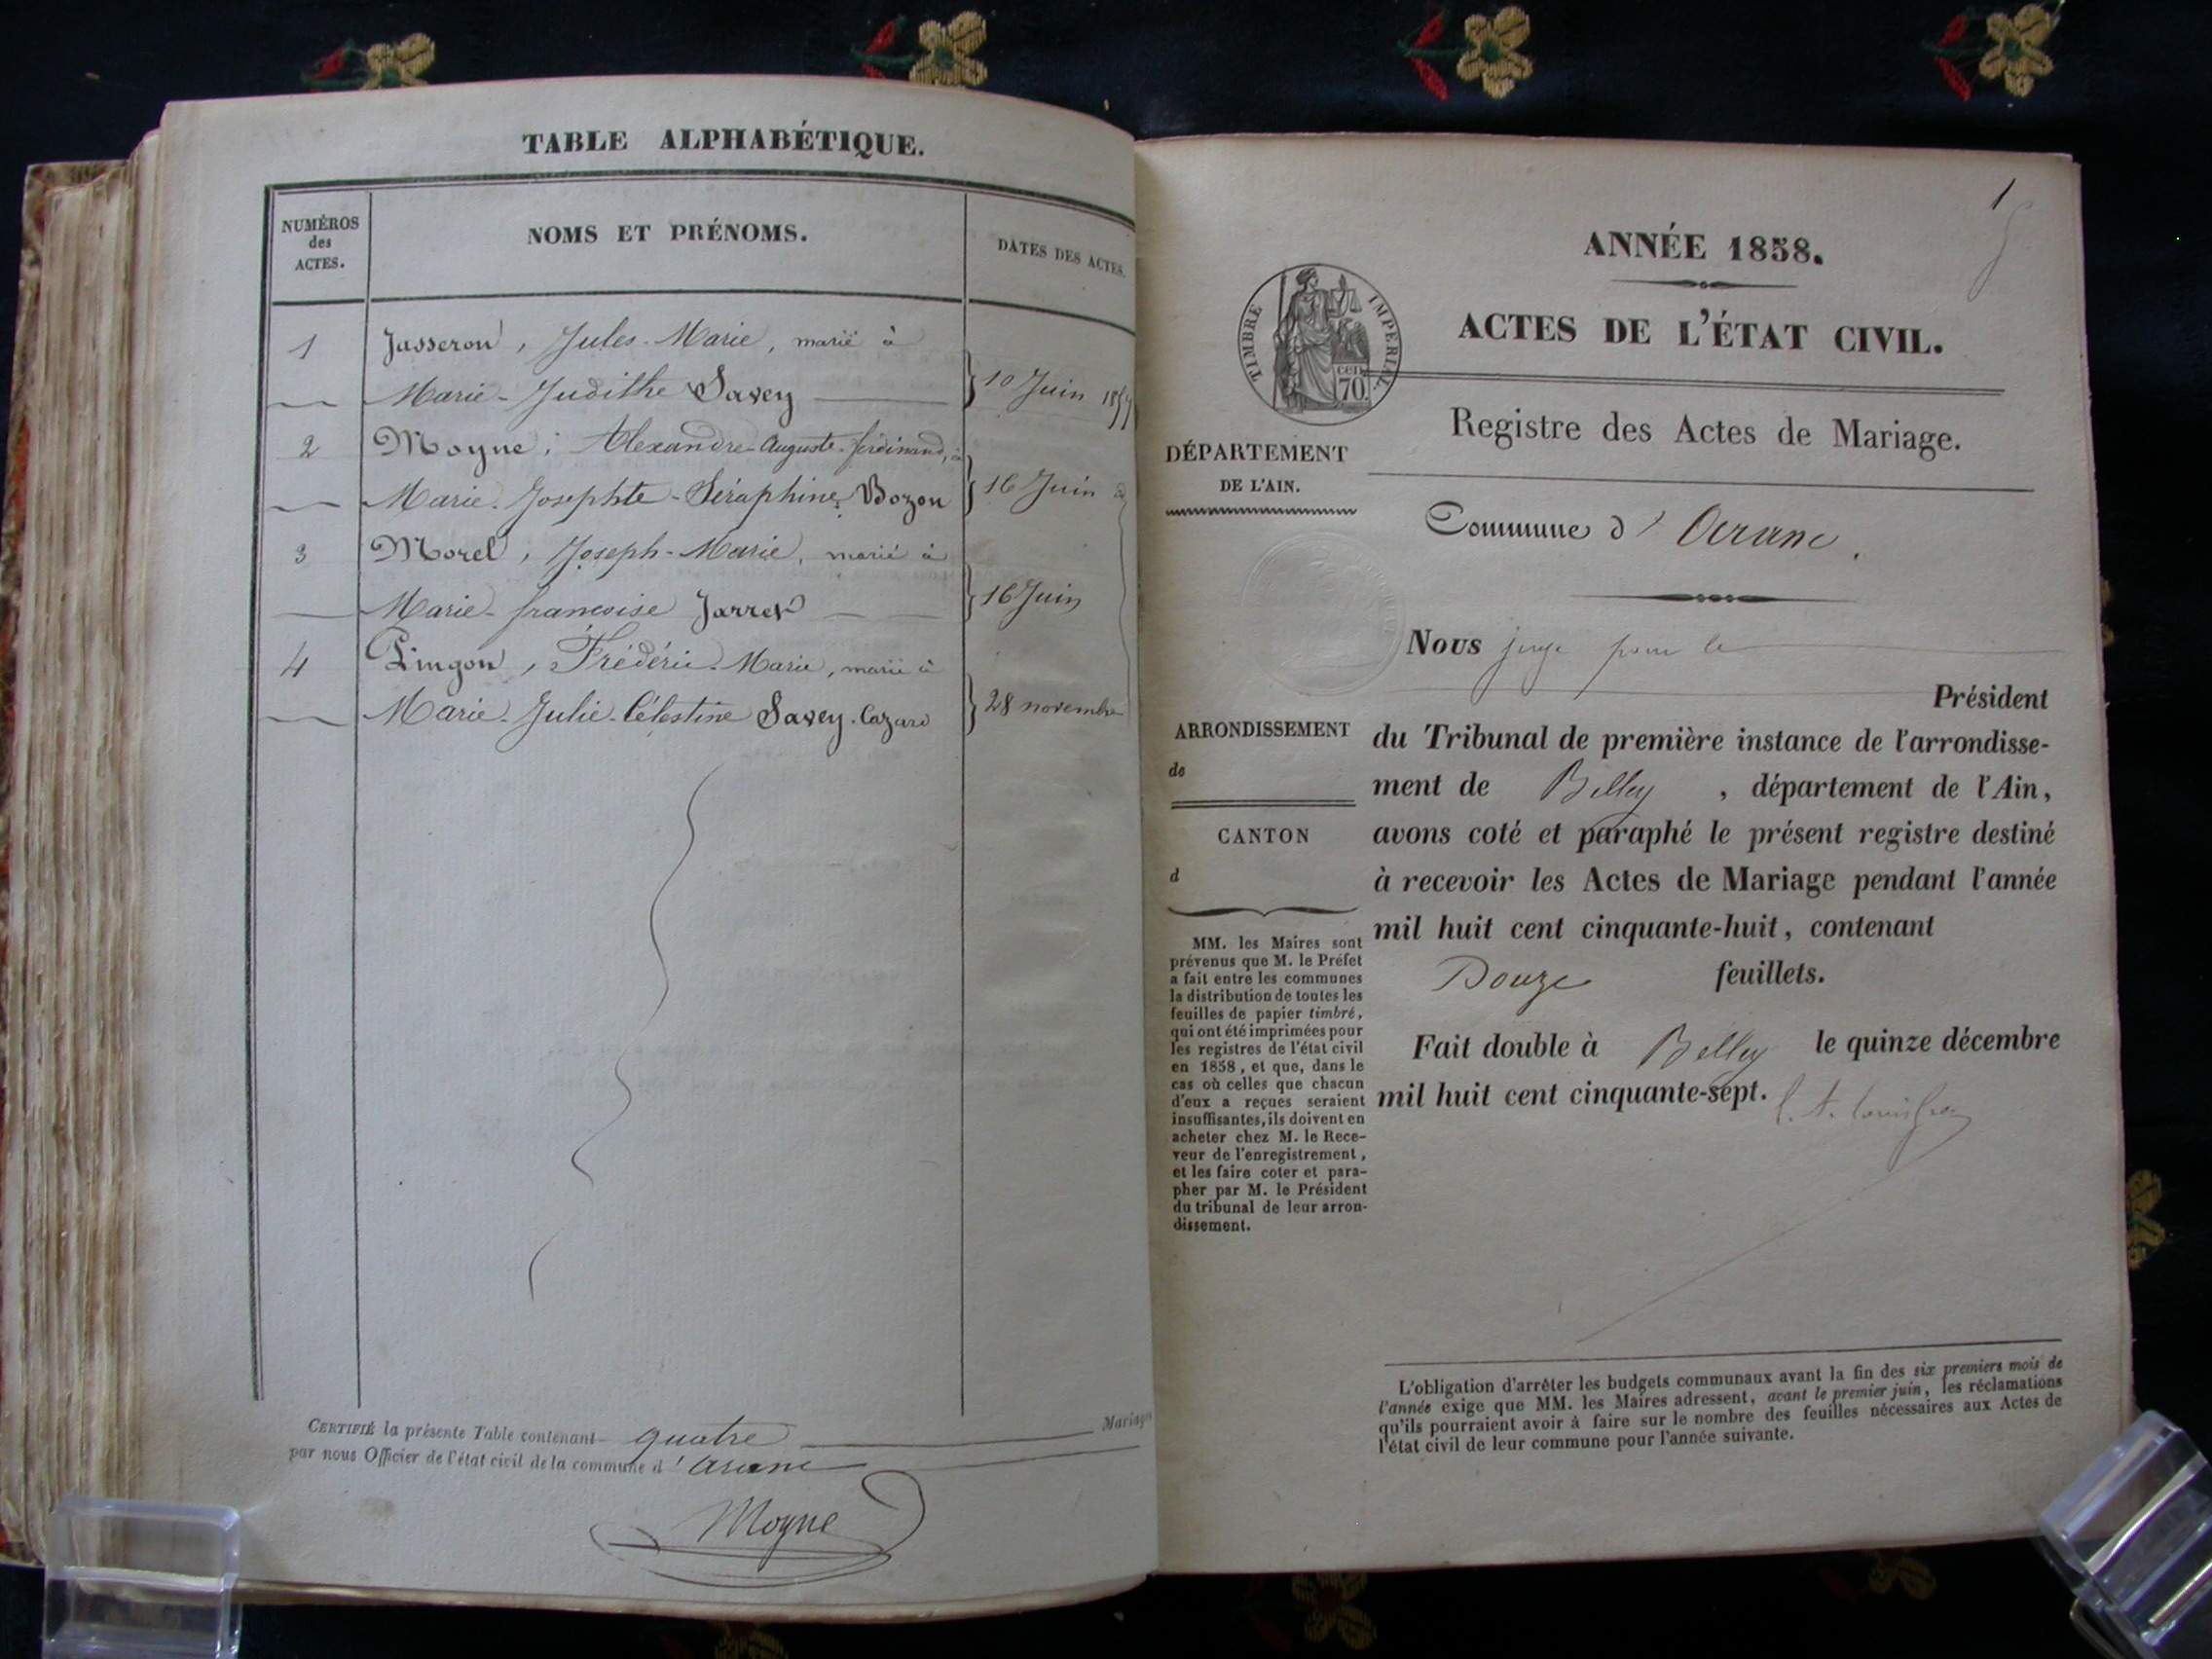 TABLE ALPHABÉTIQUE.
NUMÉROS
des
ACTES.
NOMS ET PRÉNOMS.
DATES DES ACTES.
1 Jasseron, Jules-Marie, marié à
Marie-Judithe Savey } 10 Juin 1857
2 Moyne, Alexandre-Auguste-ferdinand, à
Marie-Josephte-Séraphine Bozon } 16 Juin
3 Morel, Joseph-Marie, marié à
Marie-francoise Jarret } 16 Juin
4 Pingon, Frédéric-Marie, marié à
Marie-Julie-Célestine Savey-Cazard } 28 novembre
CERTIFIÉ la présente Table contenant quatre Mariages
par nous Officier de l'état civil de la commune d'Aranc
Moyne
1
ANNÉE 1858.
TIMBRE IMPÉRIAL
cen
70.
ACTES DE L'ÉTAT CIVIL.
Registre des Actes de Mariage.
DÉPARTEMENT
DE L'AIN.
Commune d'Aranc.
Nous juge pour le
Président
du Tribunal de première instance de l'arrondisse-
ment de Belley, département de l'Ain,
avons coté et paraphé le présent registre destiné
à recevoir les Actes de Mariage pendant l'année
mil huit cent cinquante-huit, contenant
Douze feuillets.
Fait double à Belley le quinze décembre
mil huit cent cinquante-sept.
ARRONDISSEMENT
de
CANTON
d
MM. les Maires sont
prévenus que M. le Préfet
a fait entre les communes
la distribution de toutes les
feuilles de papier timbré,
qui ont été imprimées pour
les registres de l'état civil
en 1858, et que, dans le
cas où celles que chacun
d'eux a reçues seraient
insuffisantes, ils doivent en
acheter chez M. le Rece-
veur de l'enregistrement,
et les faire coter et para-
pher par M. le Président
du tribunal de leur arron-
dissement.
L'obligation d'arrêter les budgets communaux avant la fin des six premiers mois de
l'année exige que MM. les Maires adressent, avant le premier juin, les réclamations
qu'ils pourraient avoir à faire sur le nombre des feuilles nécessaires aux Actes de
l'état civil de leur commune pour l'année suivante.